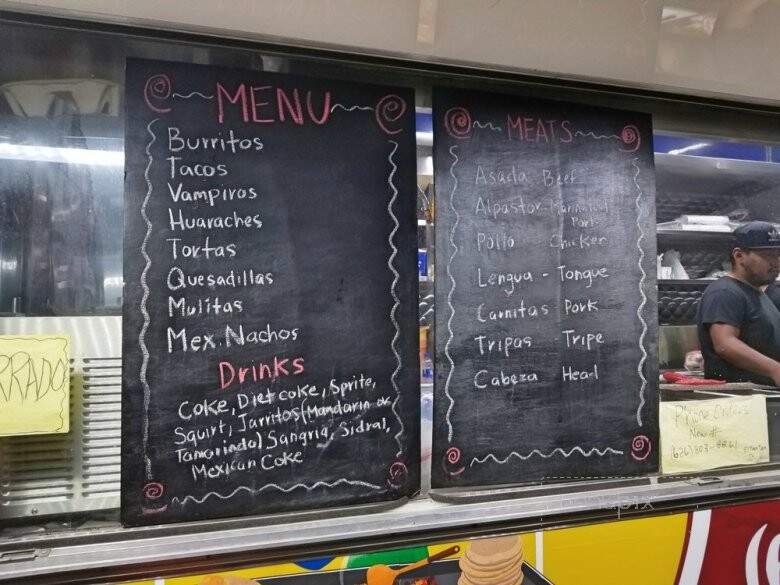 MENU
Burritos
Tacos
Vampiros
Huaraches
Tortas
Quesadillas
Mulitas
Mex. Nachos
Drinks
Coke, Diet coke, Sprite,
Squirt, Jarritos (Mandarin or
Tamarindo) Sangria, Sidral,
Mexican Coke
MEATS
Asada Beef
Alpastor - Marinated
Pork
Pollo Chicken
Lengua - Tongue
Carnitas Pork
Tripas - Tripe
Cabeza Head
RRADO
Phone Orders
New #